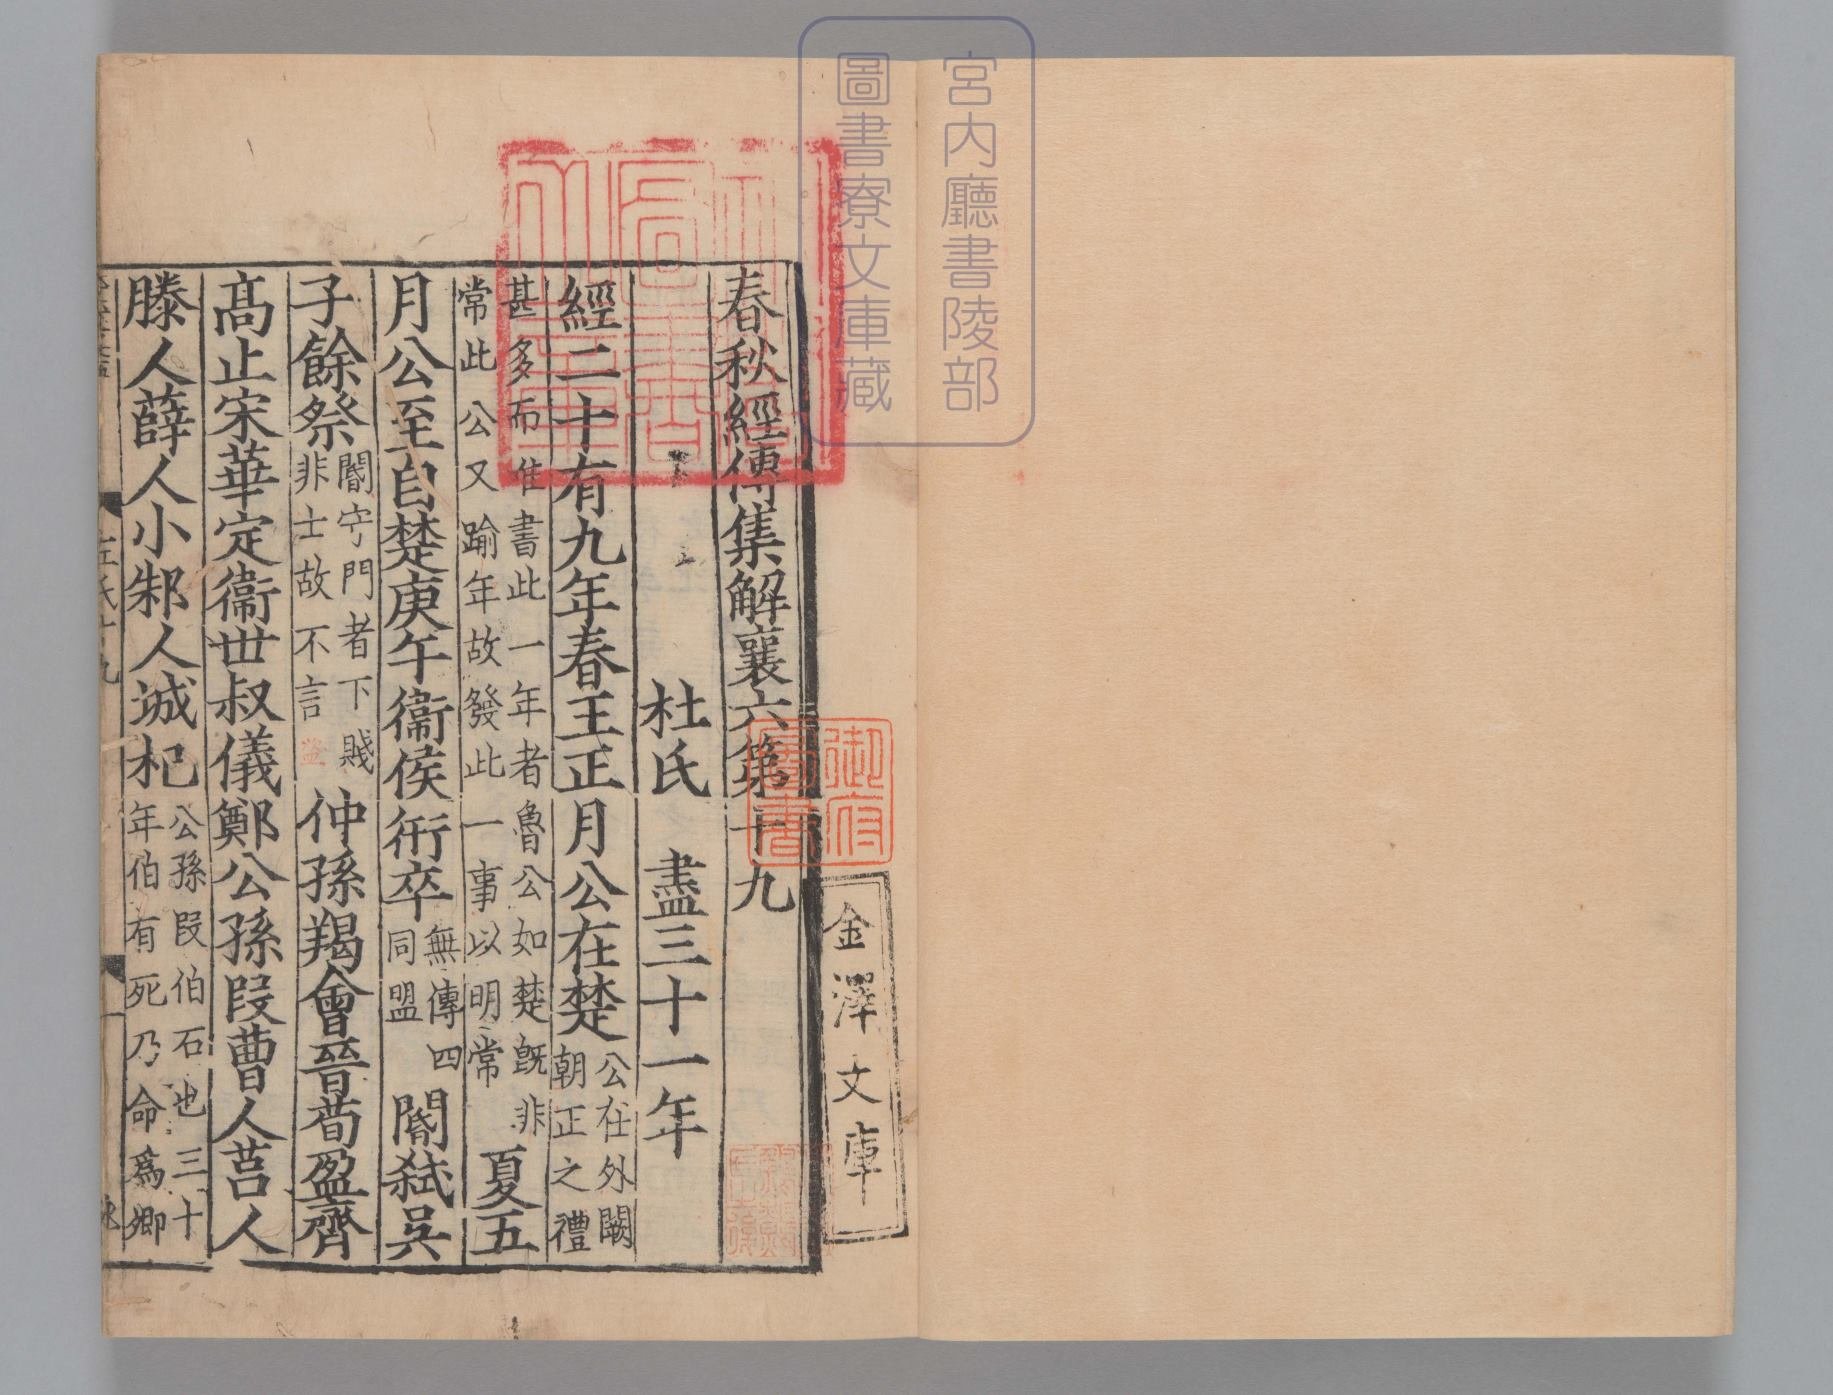 宮内廳書陵部
圖書寮文庫藏
金澤文庫
御府圖書
春秋經傳集解襄六第十九
杜氏 盡三十一年
經二十有九年春王正月公在楚公在外闕朝正之禮
甚多而惟書此一年者魯公如楚既非常此公又踰年故發此一事以明常夏五
月公至自楚庚午衞侯衎卒無傳四同盟閽弒吳
子餘祭閽守門者下賤非士故不言盜仲孫羯會晉荀盈齊
髙止宋華定衞世叔儀鄭公孫段曹人莒人
滕人薛人小邾人城杞公孫段伯石也三十年伯有死乃命爲卿
左氏十九